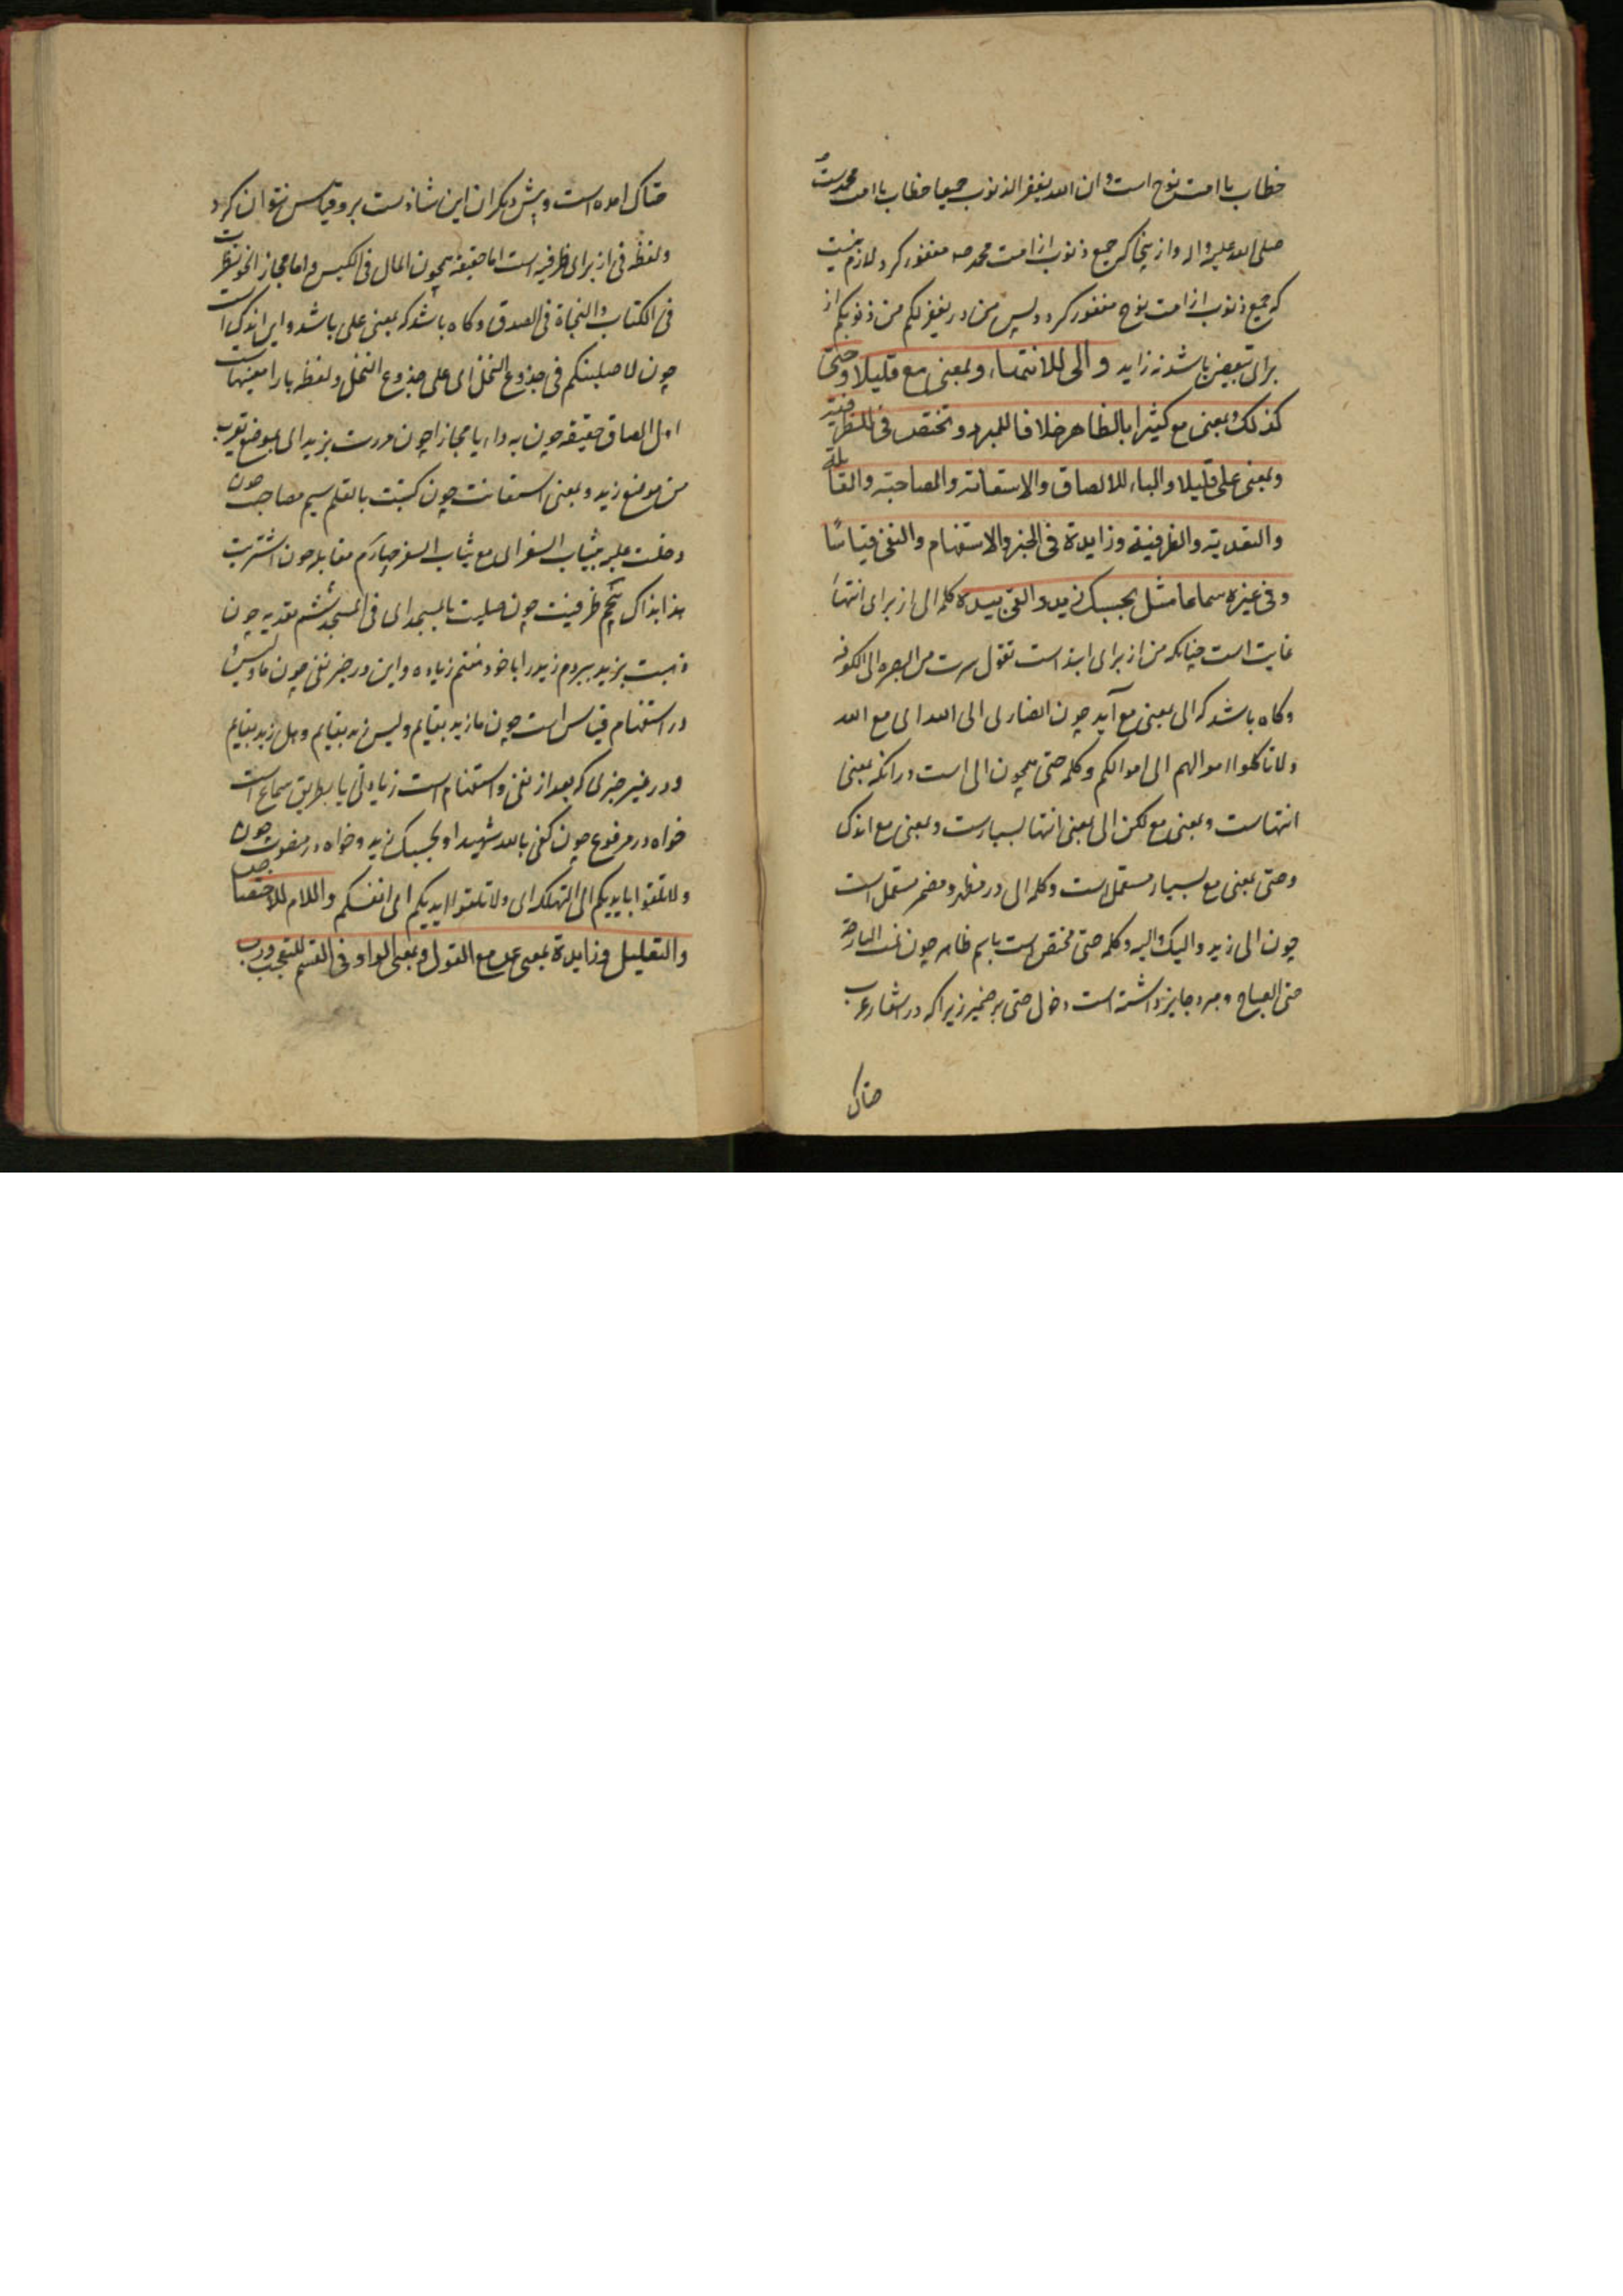 خطاب با امت نوح است و ان الله یغفر الذنوب جمیعا خطاب با امت محمدست
صلی الله علیه و اله و از ینجا که جمیع ذنوب از امت محمد صه مغفور کردد لازم نیست
که جمیع ذنوب از امت نوح مغفور کردد و لیس من در یغفر لکم من ذنوبکم از
برای تبعیض باشد نه زاید و الی للانتهاء و بمعنی مع قلیلا و حتی
کذلک و بمعنی مع کثیرا بالظاهر خلافا للمبرد و تختص فی للظرفیة
و بمعنی علی قلیلا و الباء للالصاق و الاستعانة و المصاحبة و المقابلة
و التعدیة و الظرفیة و زایدة فی الخبر و الاستفهام و النفی قیاسًا
و فی غیره سماعا مثل بحسبک زید و القی بیده کلمه الی از برای انتهاء
غایت است چنانکه من از برای ابتداست تقول سرت من البصره الی الکوفه
و کاه باشد که الی بمعنی مع آید چون انصاری الی الله ای مع الله
و لا تاکلوا اموالهم الی اموالکم و کلمه حتی همچون الی است در انکه بمعنی
انتهاست و بمعنی مع لکن الی بمعنی انتها بسیارست و بمعنی مع اندک
و حتی بمعنی مع بسیار مستعملست و کلمه الی در مظهر و مضمر مستعمل است
چون الی زید و الیک و الیه و کلمه حتی مختص است باسم ظاهر چون نمت البارحة
حتی الصباح و مبرد جایز داشته است دخول حتی بر ضمیر زیرا که در اشعار عرب
حتاک
حتاک امده است و پیش دیکران این شاذ ست برو قیاس نتوان کرد
و لفظه فی از برای ظرفیه است اما حقیقة همچون المال فی الکیس و اما مجاز النحو نظرت
فی الکتاب و النجاة فی الصدق و کاه باشد که بمعنی علی باشد و این اندک است
چون لاصلبنکم فی جذوع النخل ای علی جذوع النخل و لفظه با را معنیهاست
اول الصاق حقیقه چون به داء یا مجازا چون مررت بزید ای بموضع یقرب
من موضع زید و بمعنی استعانت چون کتبت بالقلم سیم مصاحب چون
دخلت علیه بثیاب السفر ای مع ثیاب السفر چهارم مقابله چون اشتریت
هذا بذاک پنجم ظرفیت چون صلیت بالمسجد ای فی المسجد ششم تعدیه چون
ذهبت بزید ببردم زید را با خود هفتم زیاده و این در خبر نفی چون ما و لیس
در استفهام قیاس است چون ما زید بقایم و لیس زید بقایم و هل زید بقایم
و در غیر خبری که بعد از نفی و استفهام است زیادتی با بطریق سماع است
خواه در مرفوع چون کفی بالله شهیدا و بحسبک زید و خواه در منصوب چون
و لا تلقوا بایدیکم الی التهلکه ای و لا تلقوا ایدیکم ای انفسکم و اللام للاختصاص
و التعلیل و زایدة بمعنی عن مع القول و بمعنی الواو فی القسم للتعجب و رب